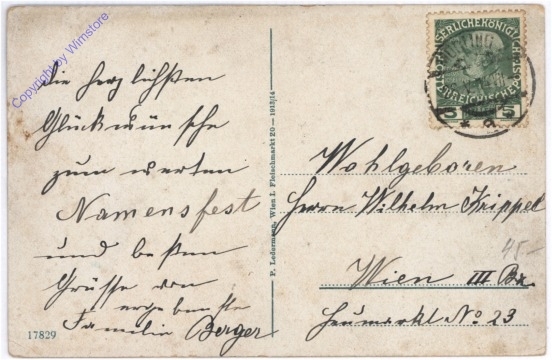 Copyright by Wimstore
die herzlichsten
Glückwünsche
zum werten
Namensfest
und besten
Grüsse von
ergebenste
Familie Berger
17829
P. Ledermann, Wien I. Fleischmarkt 20 — 1913/14
KAISERLICHEKÖNIGLICHE
ÖSTERREICHISCHE POST
5 5
Wohlgeboren
Herrn Wilhelm Krippel
Wien III Bz.
Heumarkt No 23
45-